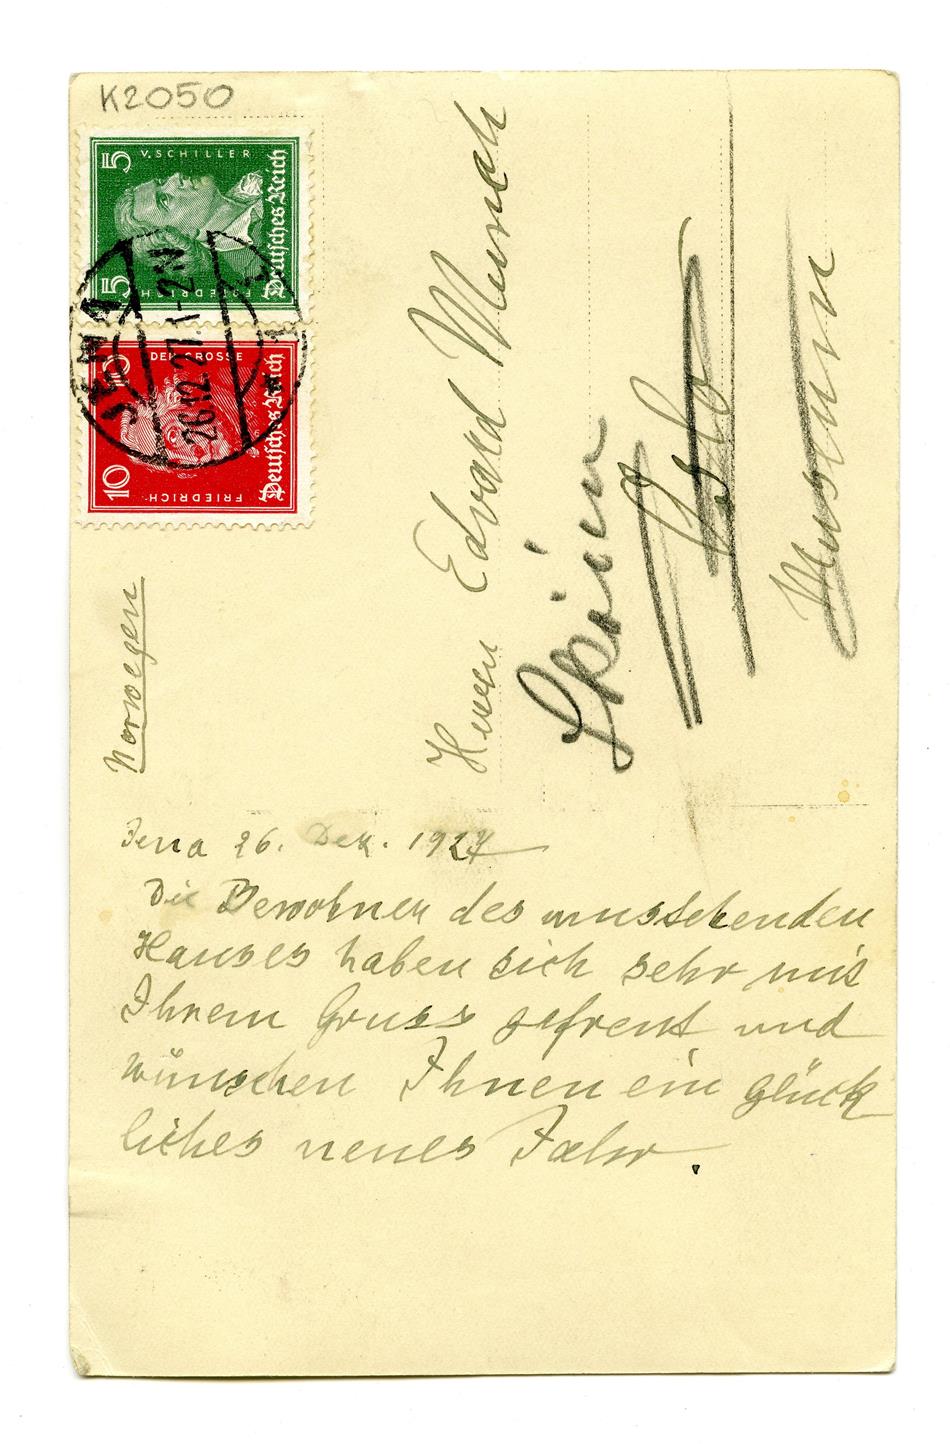 K2050
5 V. SCHILLER
5 FRIEDRICH
Deutsches Reich
10 DER GROSSE
10 FRIEDRICH
Deutsches Reich
JENA
26.12.27. 1-2 N
1
Norwegen
Herrn Edvard Munch
Skøien
Oslo
Museum
Jena 26. Dez. 1927
Die Bewohner des umstehenden
Hauses haben sich sehr mit
Ihrem Gruss gefreut und
wünschen Ihnen ein glück
liches neues Jahr.